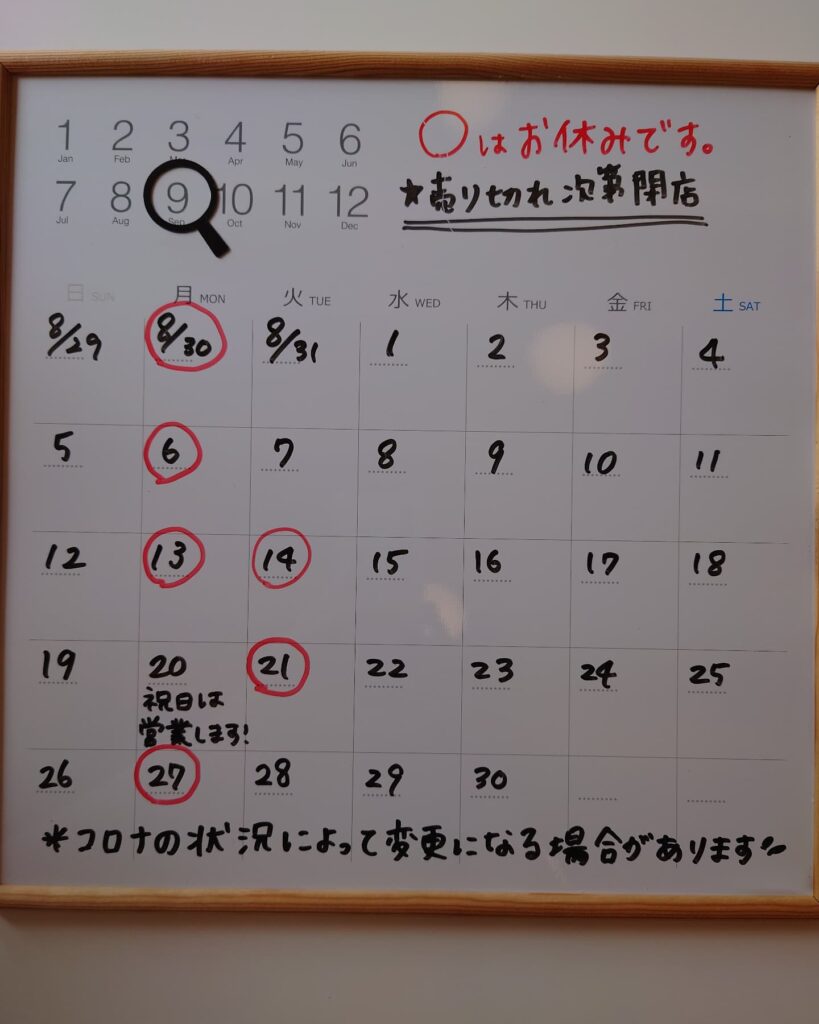 1 2 3 4 5 6
Jan Feb Mar Apr May Jun
7 8 9 10 11 12
Jul Aug Sep Oct Nov Dec
○はお休みです。
★売り切れ次第閉店
日 SUN 月 MON 火 TUE 水 WED 木 THU 金 FRI 土 SAT
8/29 8/30 8/31 1 2 3 4
5 6 7 8 9 10 11
12 13 14 15 16 17 18
19 20 21 22 23 24 25
祝日は
営業します!
26 27 28 29 30
*コロナの状況によって変更になる場合があります